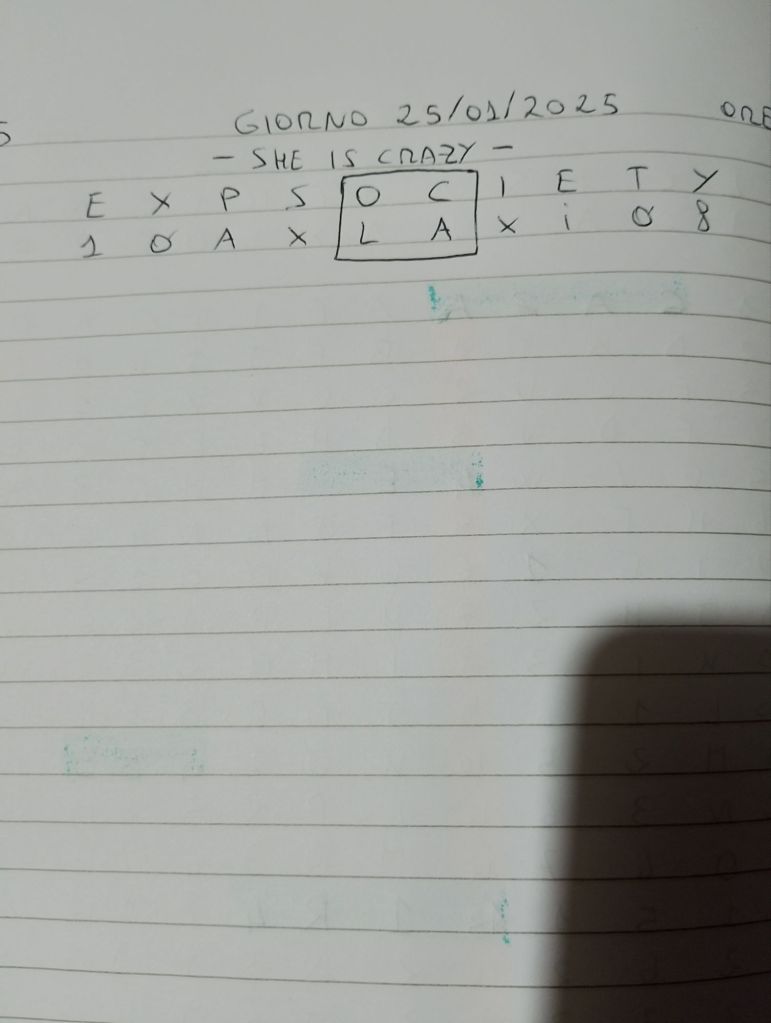 5 GIORNO 25/01/2025 ORE
- SHE IS CRAZY -
E X P S O C I E T Y
1 0 A X L A X i 0 8